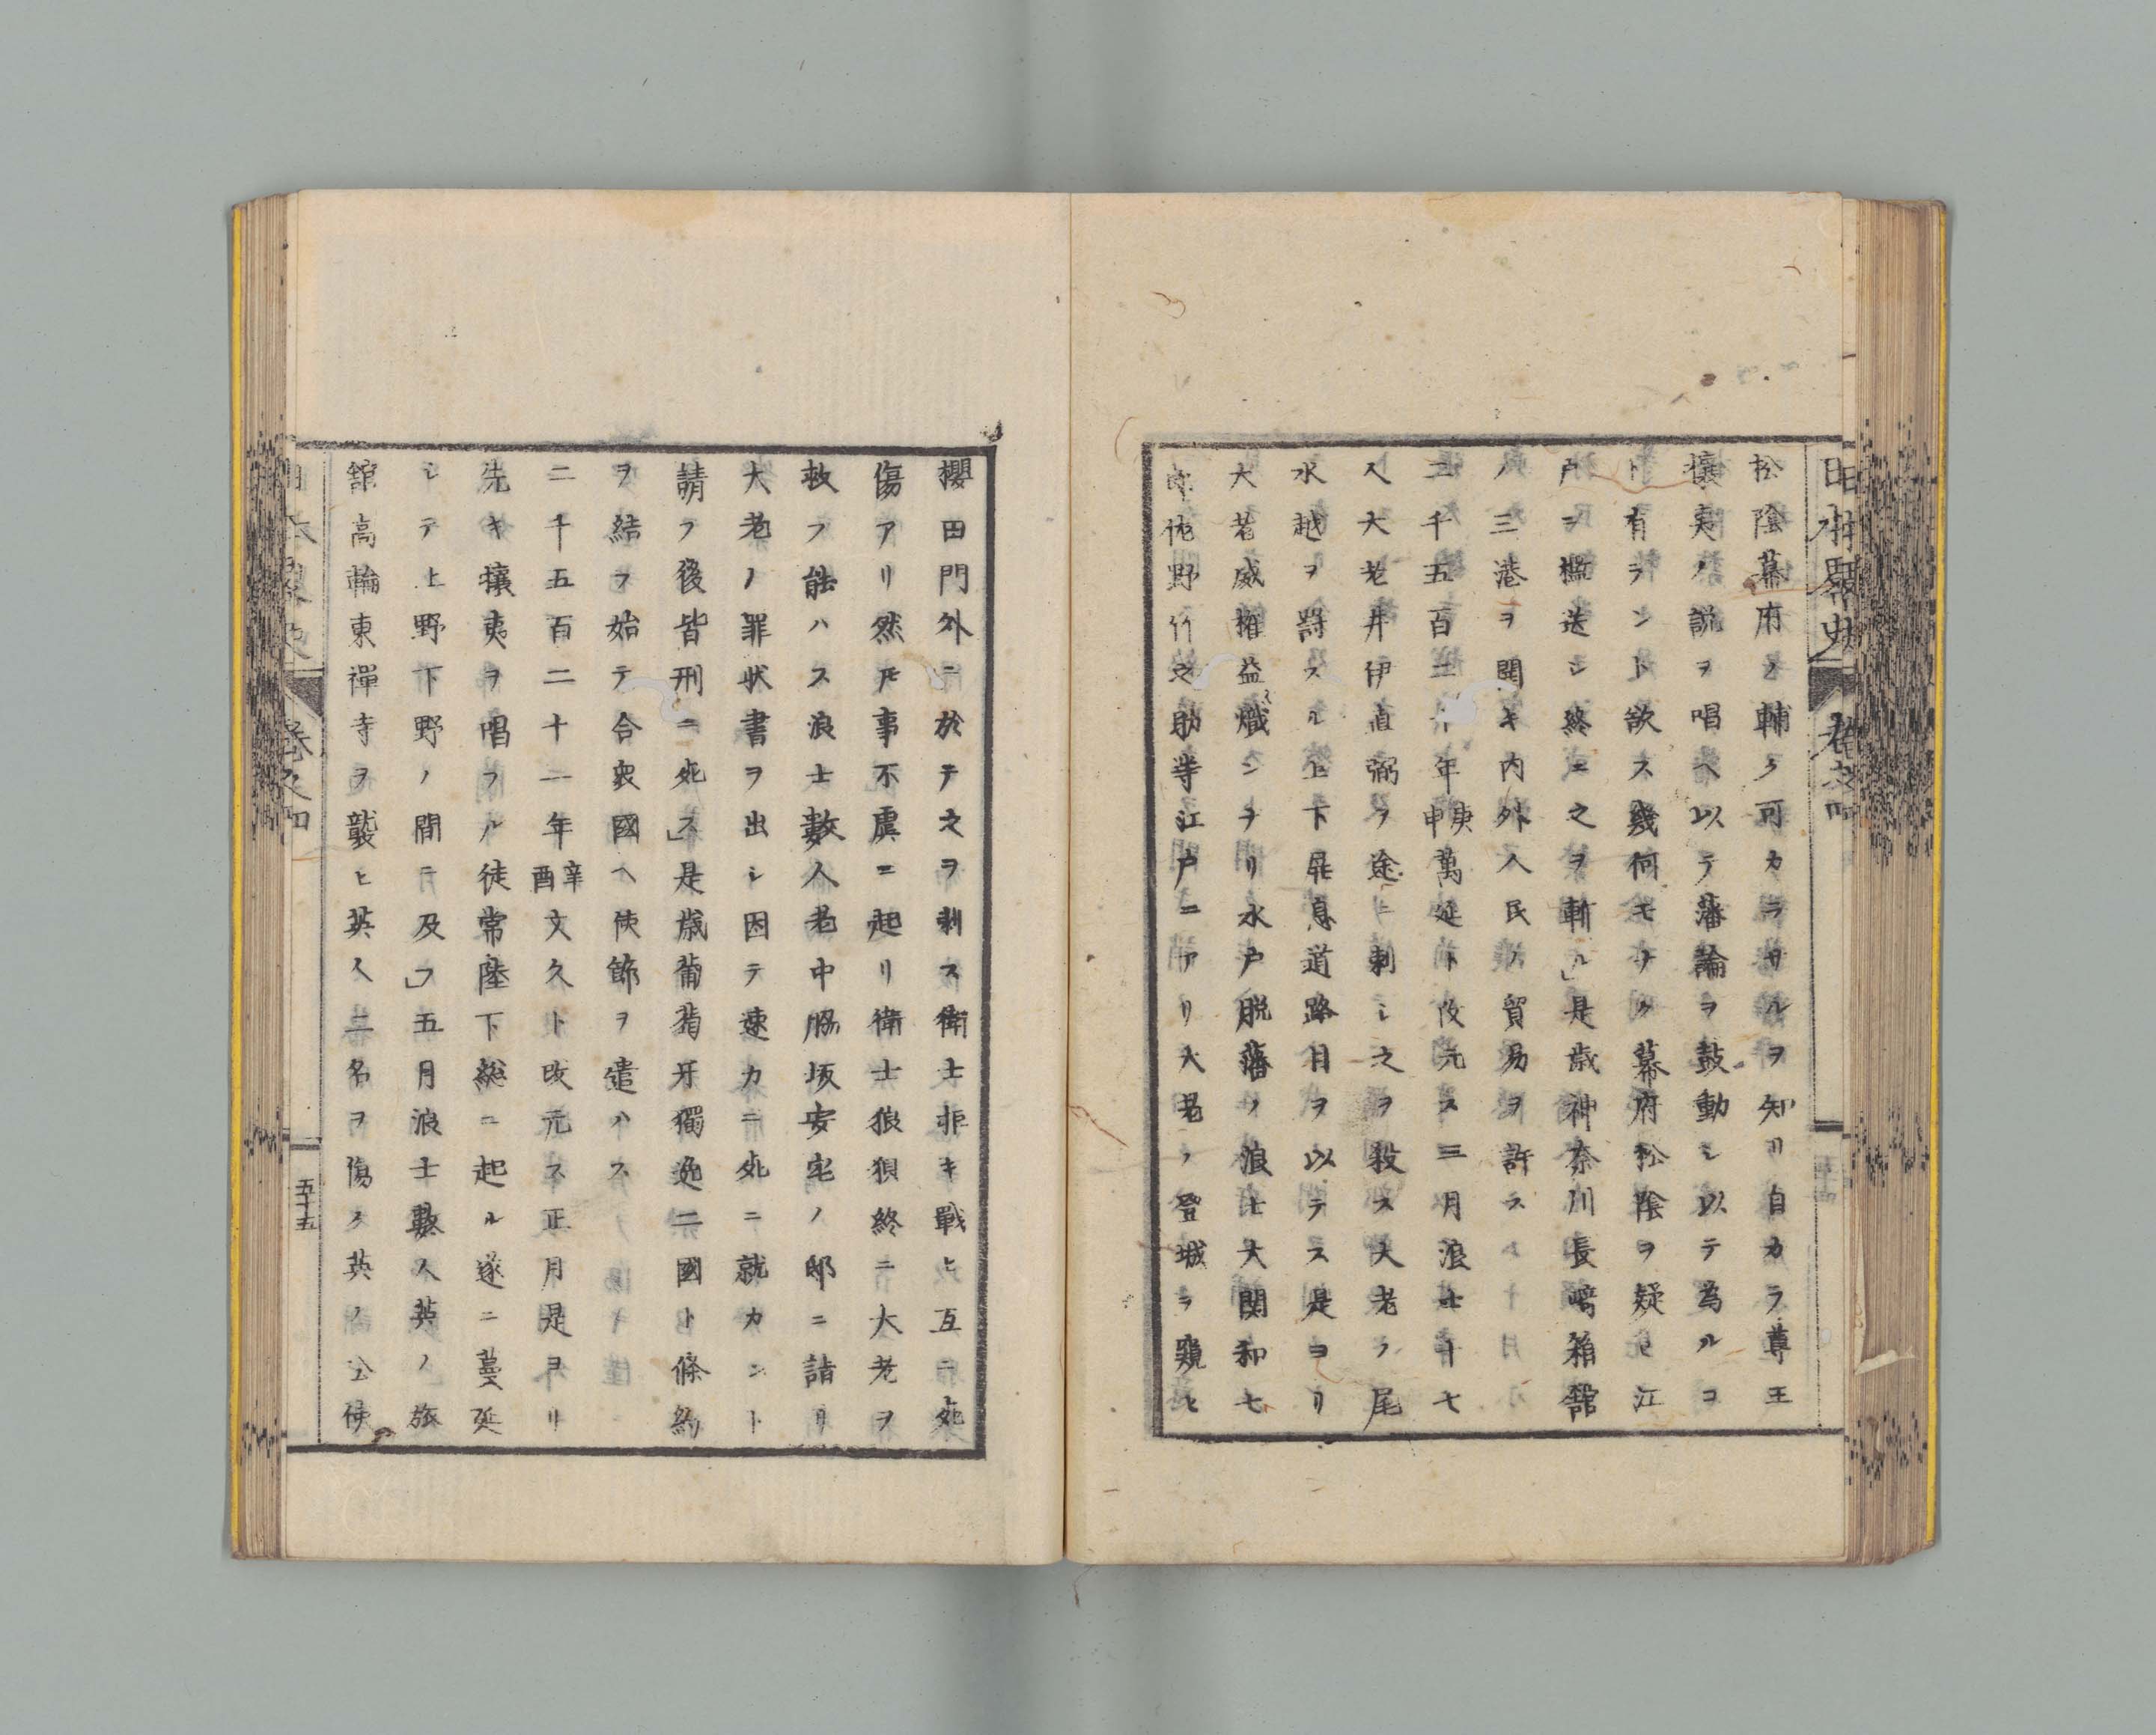 日本略史 卷之四
松陰幕府ノ輔ク可カラサルヲ知リ自カラ尊王
攘夷ノ説ヲ唱ヘ以テ藩論ヲ鼓動シ以テ為ルコ
ト有ラント欲ス幾何モナク幕府松陰ヲ疑ヒ江
戸ニ檻送シ終ニ之ヲ斬ル」是歳神奈川長﨑箱館
ノ三港ヲ開キ内外人民ノ貿易ヲ許ス
二千五百二十年庚申萬延ト改元ス三月浪士十七
人大老井伊直弼ヲ途ニ刺シ之ヲ殺ス大老ノ尾
水越ヲ罸スル上下屏息道路目ヲ以テス是ヨリ
大老威權益々熾ンナリ水戸脱藩ノ浪士大関和七
郎佐野竹之助等江戸ニアリ大老ノ登城ヲ窺ヒ
櫻田門外ニ於テ之ヲ刺ス衛士拒キ戰ヒ互ニ死
傷アリ然𪜈事不虞ニ起リ衛士狼狽終ニ大老ヲ
救フ能ハス浪士數人老中脇坂安宅ノ邸ニ詣リ
大老ノ罪狀書ヲ出シ因テ速カニ死ニ就カンﾄ
請フ後皆刑ニ死ス」是歳葡萄牙獨逸二國ト條約
ヲ結フ始テ合衆國ヘ使節ヲ遣ハス
二千五百二十一年辛酉文久ト改元ス正月是ヨリ
先キ攘夷ヲ唱フル徒常陸下総ニ起ル遂ニ蔓延
シテ上野下野ノ間ニ及フ」五月浪士數人英ノ旅
舘高輪東禪寺ヲ襲ヒ英人二名ヲ傷ク英ノ公使
日本畧史 卷之四 五十五